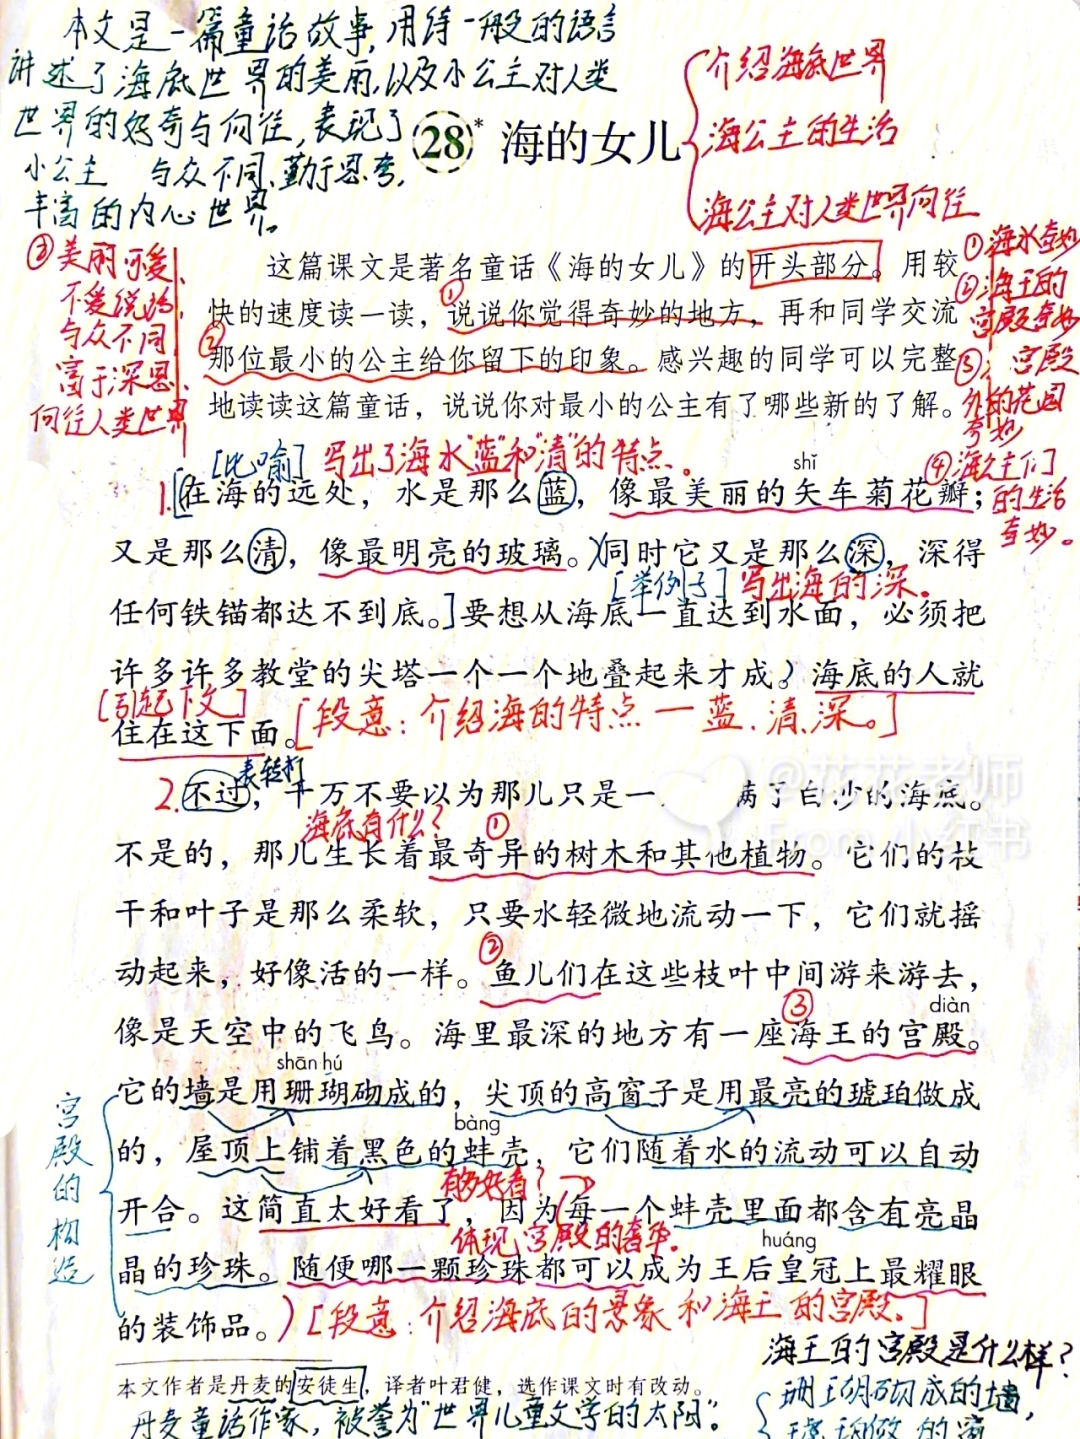 本文是一篇童话故事,用诗一般的语言
讲述了海底世界的美丽,以及小公主对人类
世界的好奇与向往,表现了
小公主 与众不同、勤于思考,
丰富的内心世界。
28* 海的女儿
介绍海底世界
海公主的生活
海公主对人类世界向往
③美丽可爱、
不爱说话
与众不同
富于深思、
向往人类世界
①海水奇妙
②海王的
宫殿奇妙
③宫殿
外的花园
奇妙
④海公主们
的生活
奇妙。
这篇课文是著名童话《海的女儿》的开头部分。用较
①
快的速度读一读，说说你觉得奇妙的地方，再和同学交流
②
那位最小的公主给你留下的印象。感兴趣的同学可以完整
地读读这篇童话，说说你对最小的公主有了哪些新的了解。
[比喻] 写出了海水"蓝"和"清"的特点。
shǐ
1.[在海的远处，水是那么蓝，像最美丽的矢车菊花瓣；
又是那么清，像最明亮的玻璃。)同时它又是那么深，深得
[举例子] 写出海的深。
任何铁锚都达不到底。]要想从海底一直达到水面，必须把
许多许多教堂的尖塔一个一个地叠起来才成。)海底的人就
[引起下文]
住在这下面。[段意：介绍海的特点一蓝、清、深。]
表转折
2.不过，千万不要以为那儿只是一 满了白沙的海底。
@花花老师
From 小红书
海底有什么？ ①
不是的，那儿生长着最奇异的树木和其他植物。它们的枝
干和叶子是那么柔软，只要水轻微地流动一下，它们就摇
②
动起来，好像活的一样。鱼儿们在这些枝叶中间游来游去，
③ diàn
像是天空中的飞鸟。海里最深的地方有一座海王的宫殿。
shān hú
它的墙是用珊瑚砌成的，尖顶的高窗子是用最亮的琥珀做成
bàng
的，屋顶上铺着黑色的蚌壳，它们随着水的流动可以自动
有多好看？
开合。这简直太好看了，因为(每一个蚌壳里面都含有亮晶
体现宫殿的奢华。
huáng
晶的珍珠。随便哪一颗珍珠都可以成为王后皇冠上最耀眼
的装饰品。)[段意：介绍海底的景象和海王的宫殿。]
宫殿的构造
本文作者是丹麦的安徒生，译者叶君健，选作课文时有改动。
丹麦童话作家，被誉为"世界儿童文学的太阳"。
海王的宫殿是什么样？
珊瑚砌成的墙，